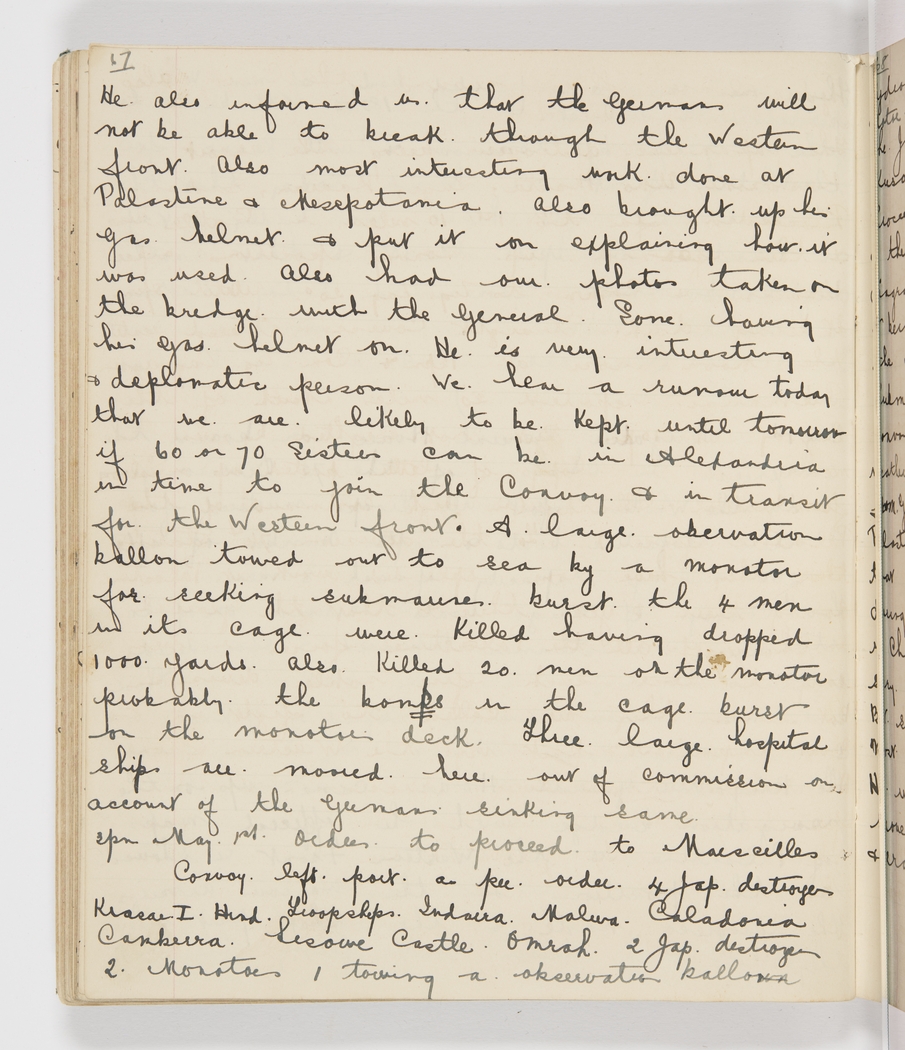 17
He also informed us. that the Germans will
not be able to break. through the Western
front. Also most interesting work. done at
Palastine & Mesepotamia. Also brought. up his
gas. helmet. & put it on explaining how. it
was used. Also had our. photos taken on
the bredge. with the General. Some. having
his gas. helmet on. He. is very. interesting
& deplomatic person. We. hear a rumour today
that we are. likely to be. Kept. until tomorrow
if 60 or 70 Sisters can be. in Alexandria
in time to join the Convoy. & in transit
for. the Western front. A. large. obervation
ballon towed out to sea by a monotor
for. seeking submarines. burst. the 4 men
in its cage. were. Killed having dropped
1000. yards. Also. Killed 20. men on the monotor
probably. the bombs in the cage. burst
on the monotors deck. Three. large. hospital
ships are. moored. here. out of commission on
account of the Germans sinking same.
2pm May. 1st. Orders. to proceed. to Marseilles
Convoy. left. port. as per. order. 4 Jap. destroyers
Kiasar I. Hind. Troopships. Indarra. Malwa. Caladonia
Canberra. Lesowe Castle. Omrah. 2 Jap. destroyers
2. Monotors 1 towing a. observation ballon